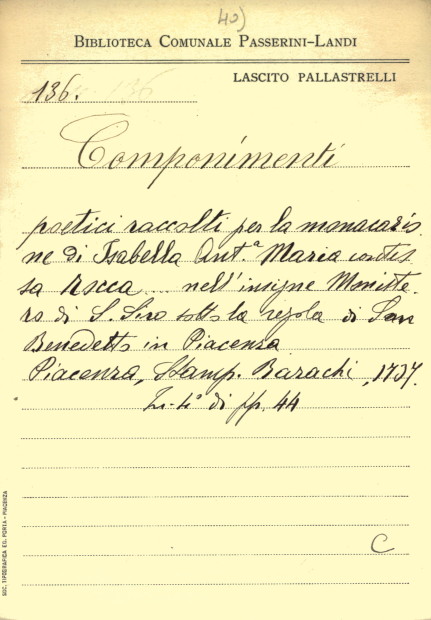 40)
BIBLIOTECA COMUNALE PASSERINI-LANDI
LASCITO PALLASTRELLI
136.
Componimenti
poetici raccolti per la monacazio
ne di Isabella Ant.a Maria contes
sa Rocca ... nell'insigne Moniste
ro di S. Siro sotto la regola di San
Benedetto in Piacenza
Piacenza, Stamp. Barachi, 1737.
In-4° di pp. 44
C
SOC. TIPOGRAFICA ED. PORTA - PIACENZA